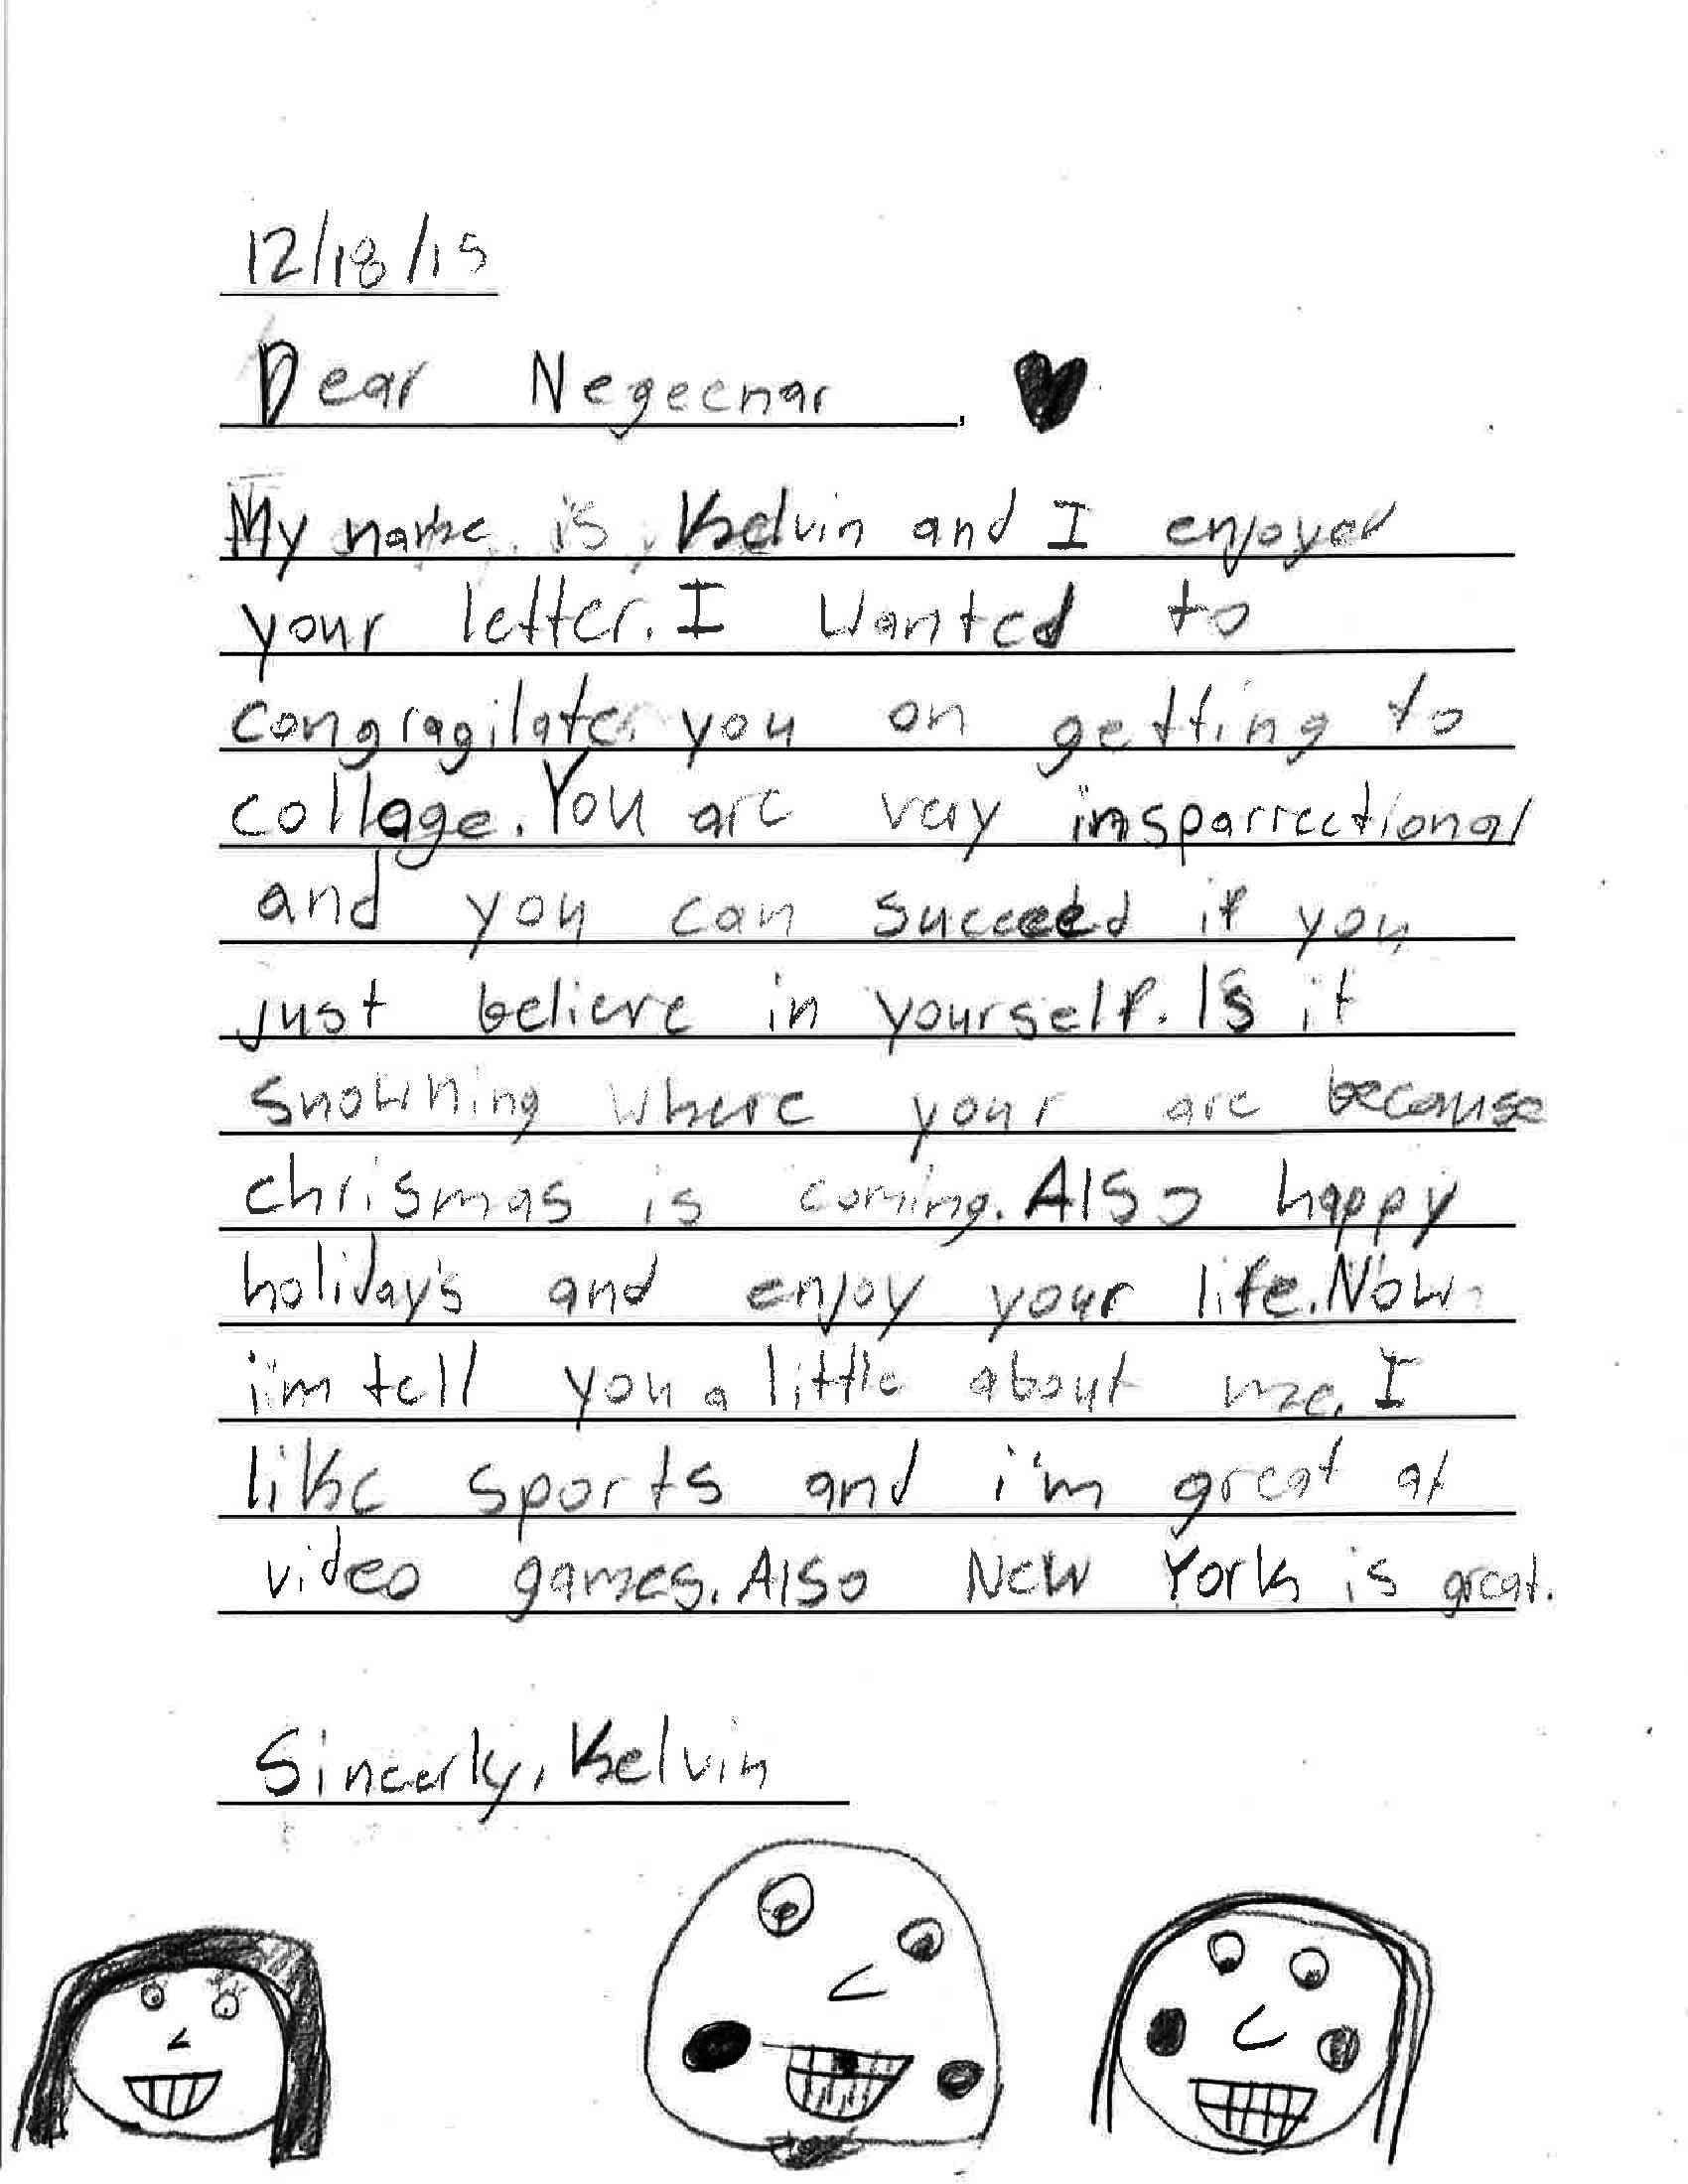 12/18/15
Dear Negeenar,
My name is Kelvin and I enjoyed
your letter. I wanted to
congragilate you on getting to
collage. You are very insparrectional
and you can succeed if you
just believe in yourself. Is it
snowning where your are because
chrismas is coming. Also happy
holiday's and enjoy your life. Now
i'm tell you a little about me. I
like sports and i'm great at
video games. Also New York is great.
Sincerly, Kelvin